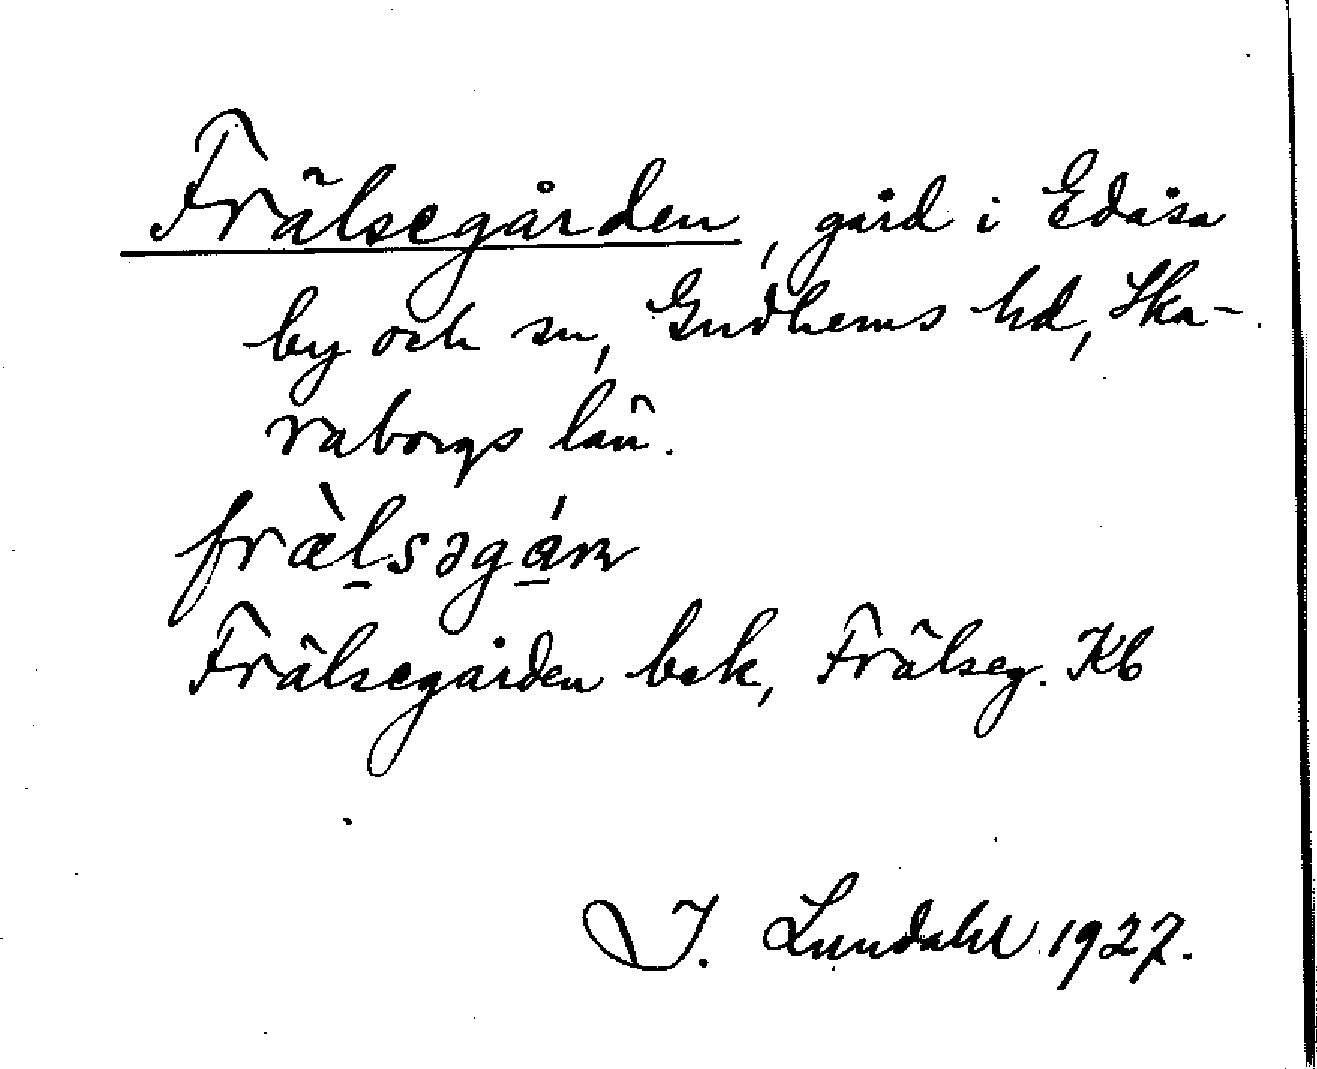 Frälsegården, gård i Edåsa
by och sn, Gudhems hd, Ska-
raborgs län.
fræ̀l̠səgá̠ɳ
Frälsegården bok, Frälseg. Kb
I. Lundahl 1927.